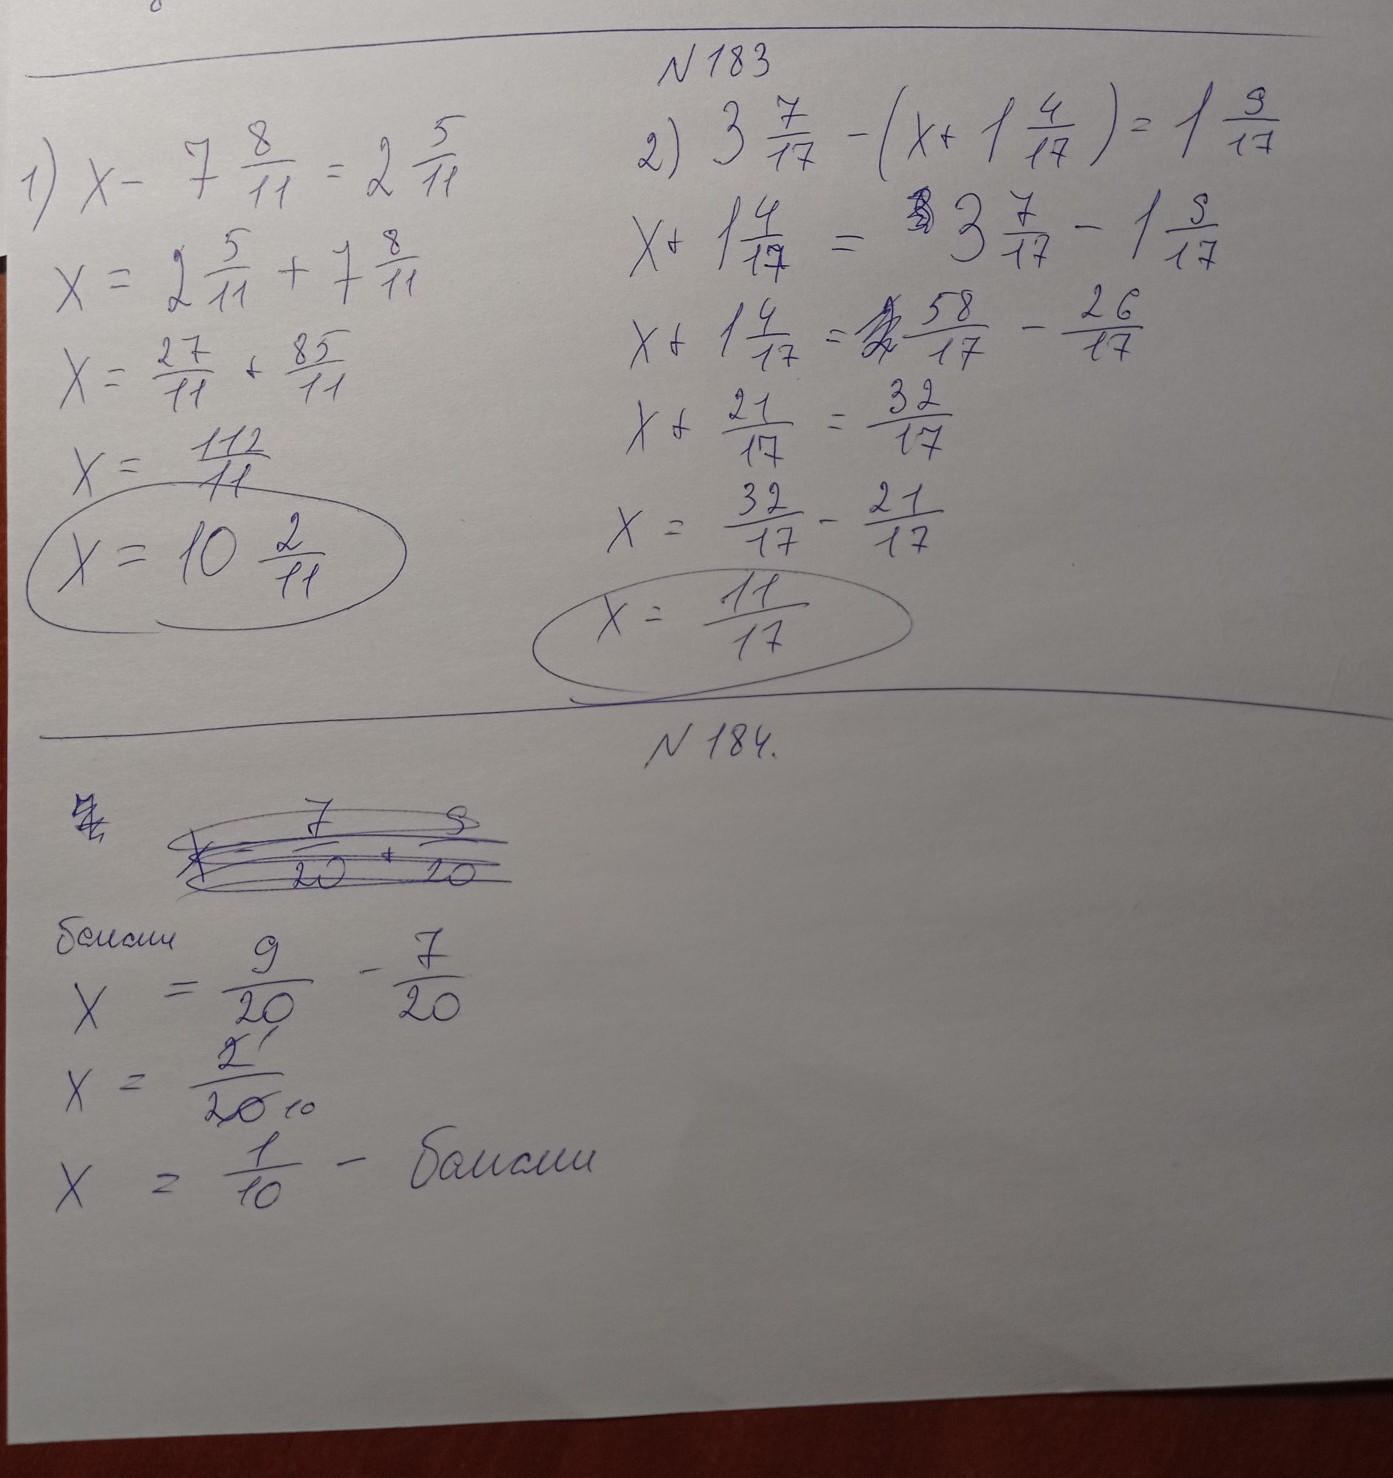 N 183
1) x - 7 8/11 = 2 5/11
x = 2 5/11 + 7 8/11
x = 27/11 + 85/11
x = 112/11
x = 10 2/11
2) 3 7/17 - (x + 1 4/17) = 1 9/17
x + 1 4/17 = 3 7/17 - 1 9/17
x + 1 4/17 = 58/17 - 26/17
x + 21/17 = 32/17
x = 32/17 - 21/17
x = 11/17
N 184.
x = 7/20 + 9/20
банани
x = 9/20 - 7/20
x = 2 1/20 10
x = 1/10 - банани